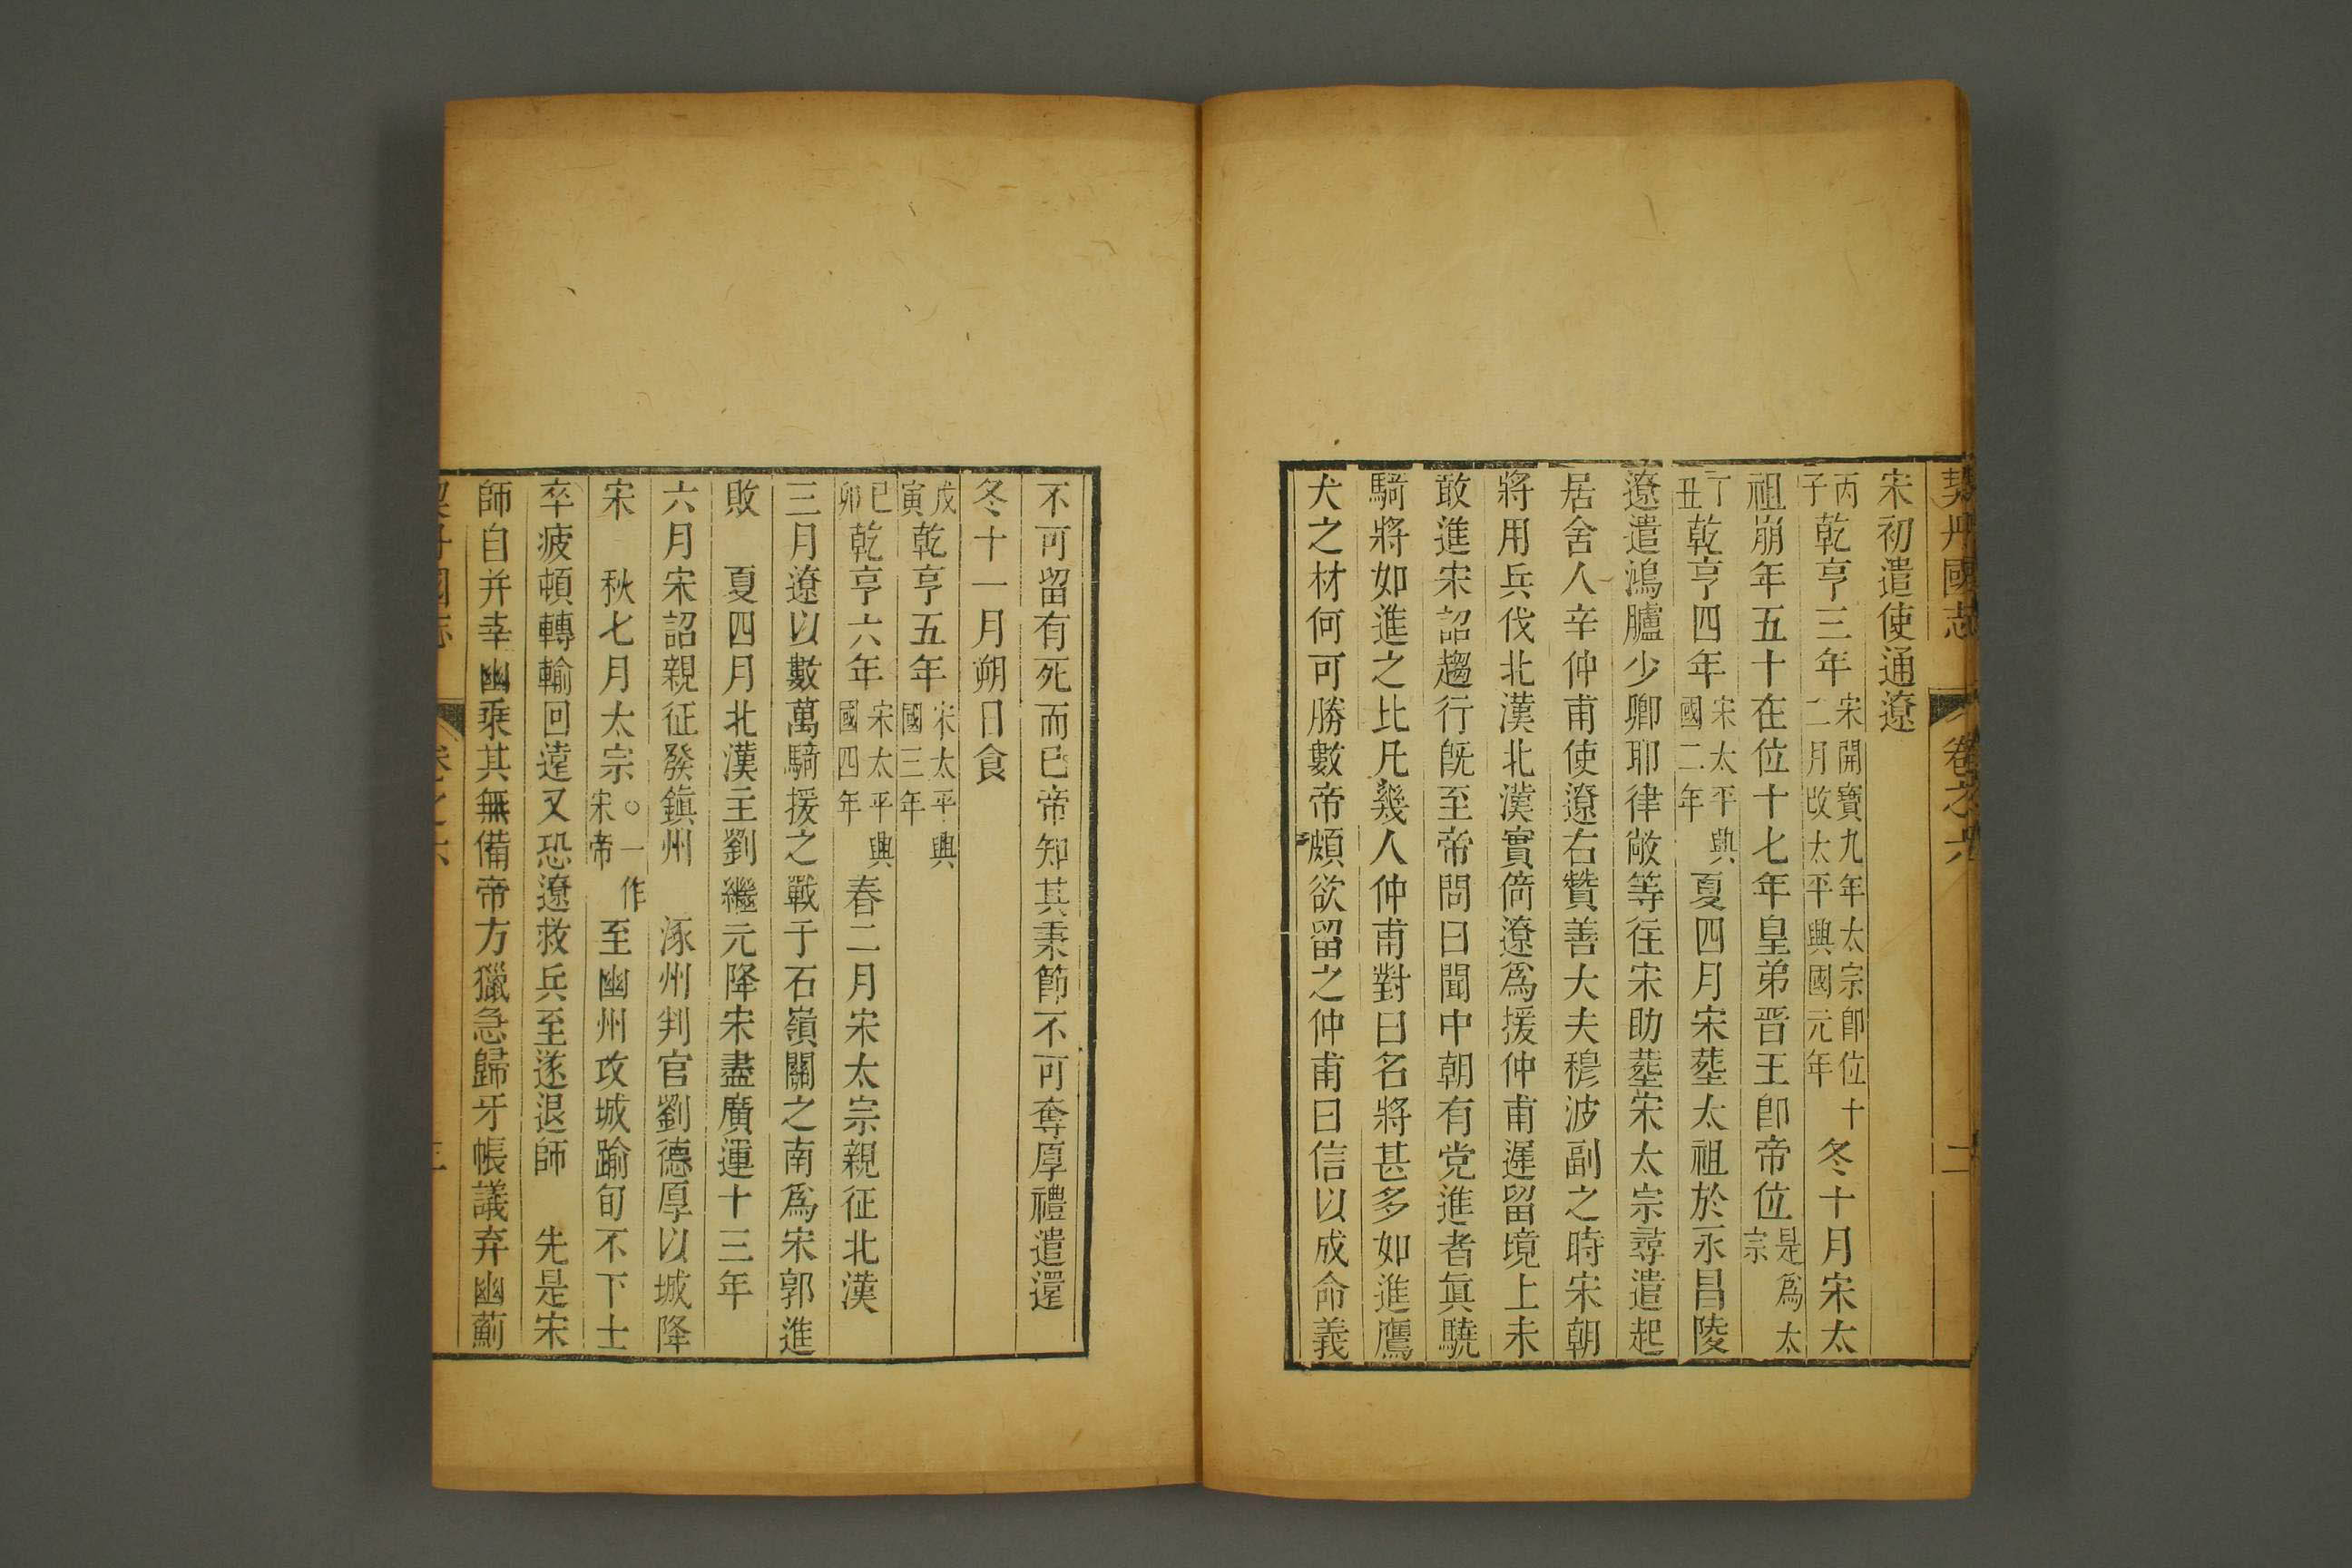 契丹國志 卷之六 二
宋初遣使通遼
丙子乾亨三年宋開寶九年太宗卽位十二月改太平興國元年冬十月宋太
祖崩年五十在位十七年皇弟晋王卽帝位是爲太宗
丁丑乾亨四年宋太平興國二年夏四月宋塟太祖於永昌陵
遼遣鴻臚少卿耶律敞等往宋助塟宋太宗尋遣起
居舍人辛仲甫使遼右贊善大夫穆波副之時宋朝
將用兵伐北漢北漢實倚遼爲援仲甫遲留境上未
敢進宋詔趨行旣至帝問曰聞中朝有党進者眞驍
騎將如進之比凡幾人仲甫對曰名將甚多如進鷹
犬之材何可勝數帝頗欲留之仲甫曰信以成命義
不可留有死而已帝知其秉節不可奪厚禮遣還
冬十一月朔日食
戊寅乾亨五年宋太平興國三年
己卯乾亨六年宋太平興國四年春二月宋太宗親征北漢
三月遼以數萬騎援之戰于石嶺關之南爲宋郭進
敗 夏四月北漢主劉繼元降宋盡廣運十三年
六月宋詔親征發鎮州 涿州判官劉德厚以城降
宋 秋七月太宗○一作宋帝至幽州攻城踰旬不下士
卒疲頓轉輸回遠又恐遼救兵至遂退師 先是宋
師自并幸幽乘其無備帝方獵急歸牙帳議弃幽薊
契丹國志 卷之六 三